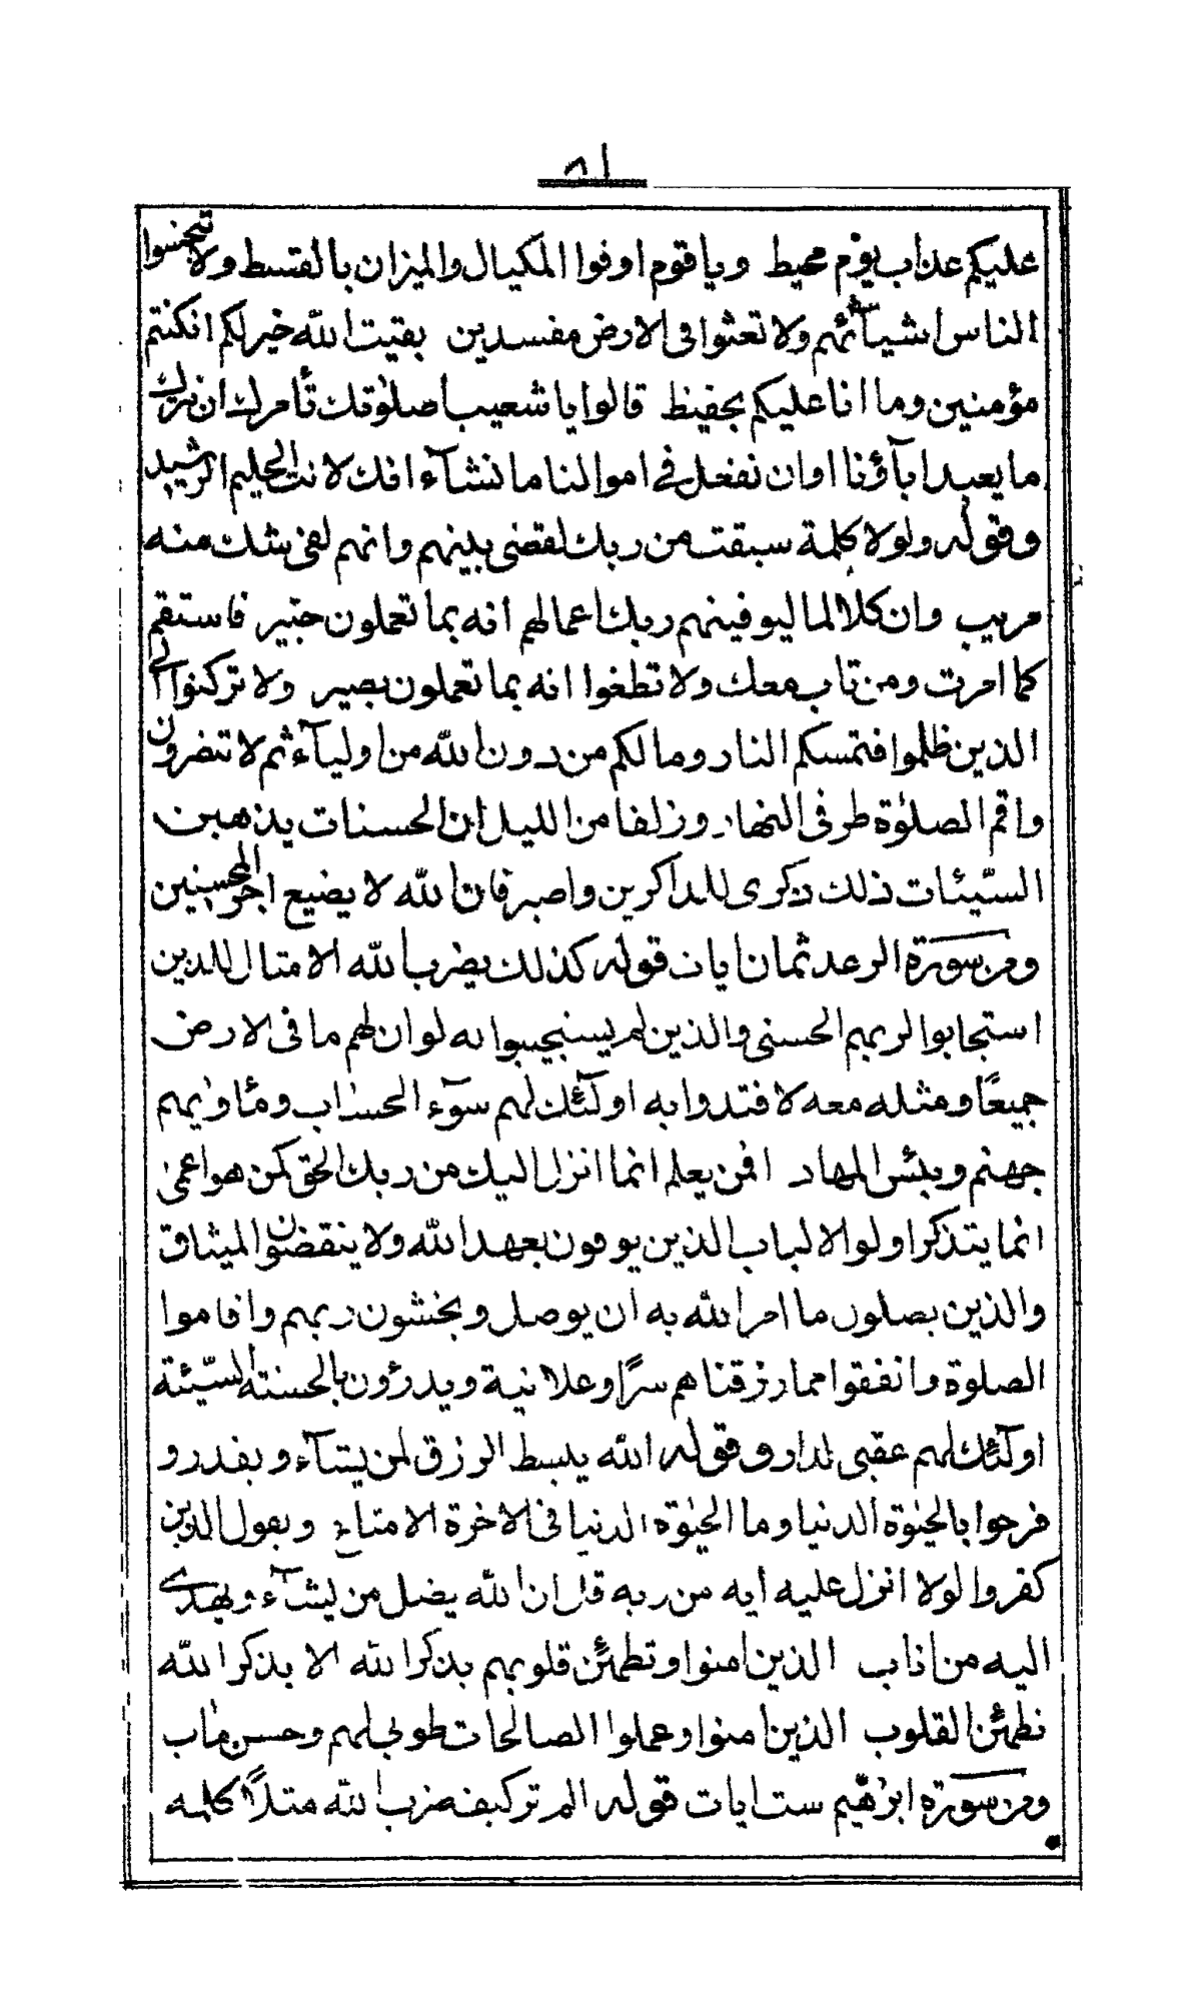 ٨١
عليكم عذاب يوم محيط وياقوم اوفوا المكيال والميزان بالقسط ولا تبخسوا
الناس اشيآئهم ولا تعثوا فى الارض مفسدين بقيت الله خير لكم ان كنتم
مؤمنين وما انا عليكم بحفيظ قالوا يا شعيب اصلوتك تأمرك ان نترك
ما يعبد ابآؤنا اوان نفعل فى اموالنا ما نشآء انك لانت الحليم الرشيد
وقوله ولولا كلمة سبقت من ربك لقضى بينهم وانهم لفى شك منه
مريب وان كلا لما ليوفينهم ربك اعمالهم انه بما تعملون خبير فاستقم
كما امرت ومن تاب معك ولا تطغوا انه بما تعملون بصير ولا تركنوا الى
الذين ظلموا فتمسكم النار وما لكم من دون الله من اوليآء ثم لا تنصرون
واقم الصلوة طرفى النهار وزلفا من الليل ان الحسنات يذهبن
السيّئات ذلك ذكرى للذاكرين واصبر فان الله لا يضيع اجر المحسنين
ومن سورة الرعد ثمان ايات قوله كذلك يضرب الله الامثال للذين
استجابوا لربهم الحسنى والذين لم يستجيبوا له لو ان لهم ما فى الارض
جميعًا ومثله معه لافتدوا به اولٓئك لهم سوٓء الحساب ومأويهم
جهنم وبئس المهاد افمن يعلم انما انزل اليك من ربك الحق كمن هو اعمى
انما يتذكر اولوا الالباب الذين يوفون بعهد الله ولا ينقضون الميثاق
والذين يصلون ما امر الله به ان يوصل ويخشون ربهم واقاموا
الصلوة وانفقوا مما رزقناهم سرًّا وعلانية ويدرؤن بالحسنة السيّئة
اولٓئك لهم عقبى الدار وقوله الله يبسط الرزق لمن يشآء ويقدر و
فرحوا بالحيوة الدنيا وما الحيوة الدنيا فى الاخرة الا متاع ويقول الذين
كفروا لولا انزل عليه اية من ربه قل ان الله يضل من يشآء ويهدى
اليه من اناب الذين امنوا وتطمئن قلوبهم بذكر الله الا بذكر الله
تطمئن القلوب الذين امنوا وعملوا الصالحات طوبى لهم وحسن ماب
ومن سورة ابرٰهيم ست ايات قوله الم تر كيف ضرب الله مثلاً كلمة